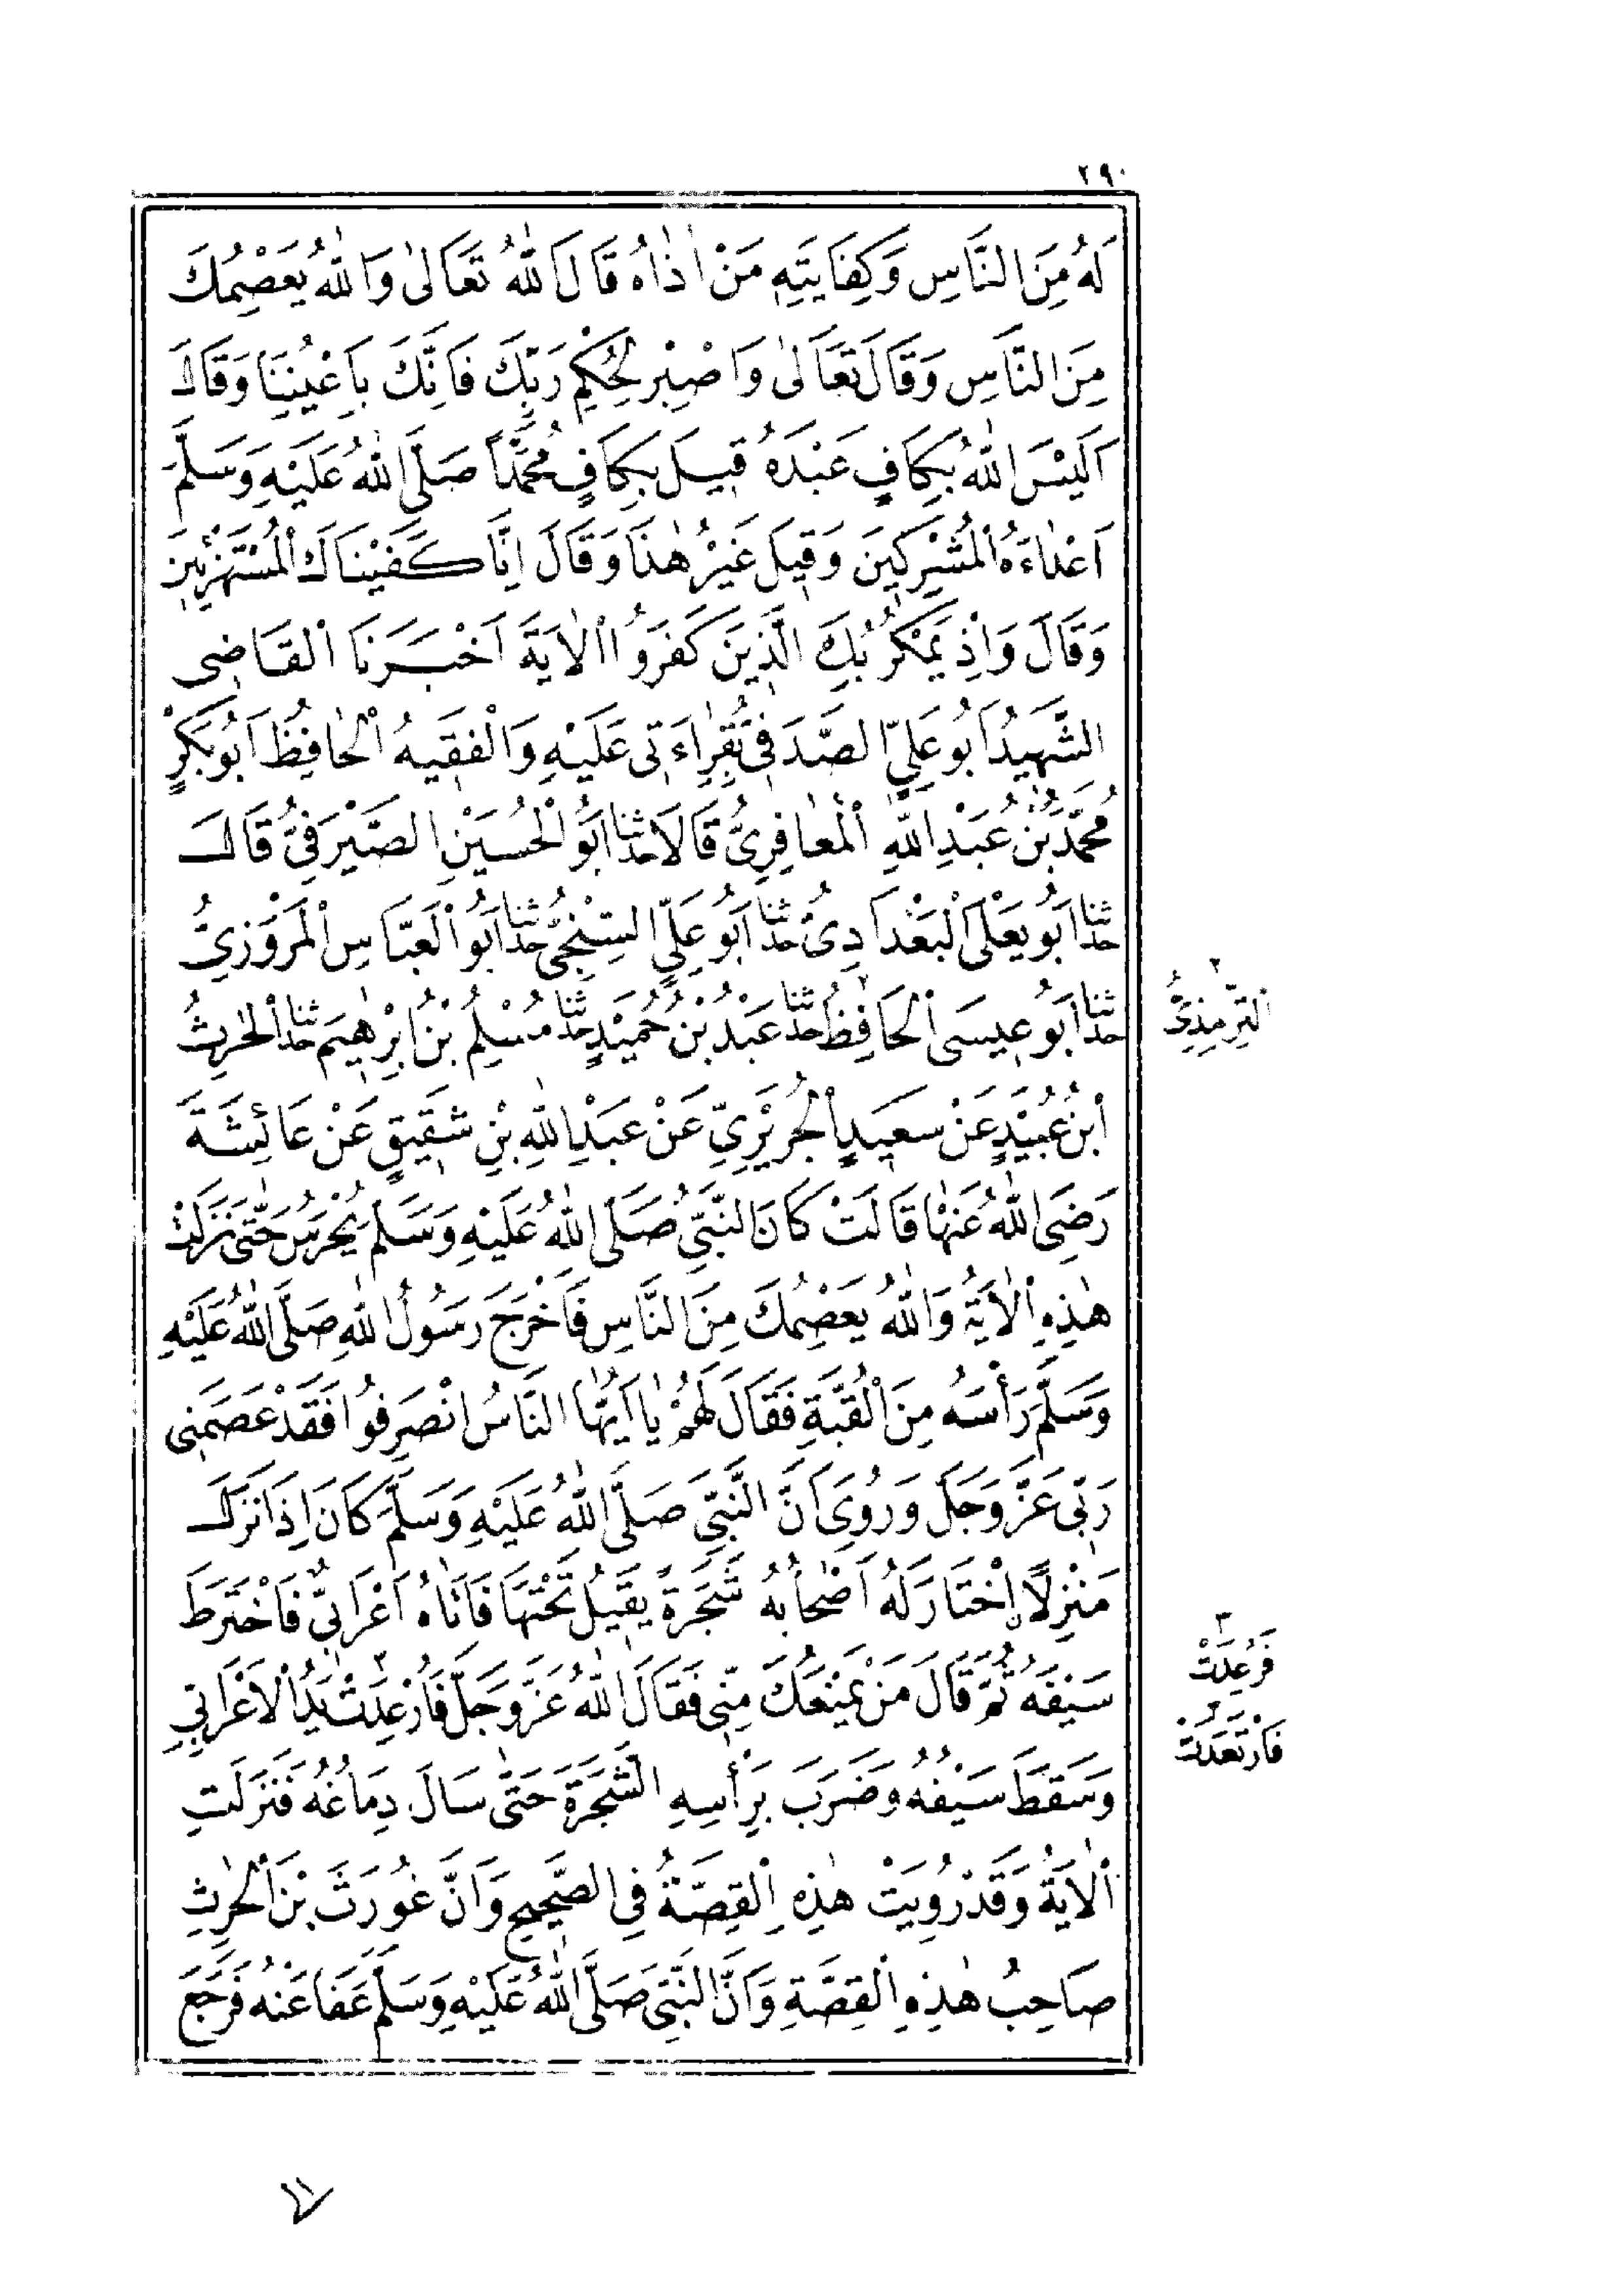 ٢٩٠
لَهُ مِنَ النَّاسِ وَكِفَايَتِهِ مَنْ اٰذَاهُ قَالَ اللّٰهُ تَعَالىٰ وَاللّٰهُ يَعْصِمُكَ
مِنَ النَّاسِ وَقَالَ تَعَالىٰ وَاصْبِرْ لِحُكْمِ رَبِّكَ فَاِنَّكَ بِاَعْيُنِنَا وَقَالَ
اَلَيْسَ اللّٰهُ بِكَافٍ عَبْدَهُ قِيلَ بِكَافٍ مُحَمَّداً صَلَّى اللّٰهُ عَلَيْهِ وَسَلَّمَ
اَعْدٰاءَهُ الْمُشْرِكِينَ وَقِيلَ غَيْرُ هٰذَا وَقَالَ اِنَّا كَفَيْنَاكَ الْمُسْتَهْزِئِينَ
وَقَالَ وَاِذْ يَمْكُرُ بِكَ الَّذِينَ كَفَرُوا الْاٰيَةَ اَخْبَرَنَا الْقَاضِى
الشَّهِيدُ اَبُو عَلِيٍّ الصَّدَفِىُّ بِقِرٰاءَتِى عَلَيْهِ وَالْفَقِيهُ الْحٰافِظُ اَبُو بَكْرٍ
مُحَمَّدُ بْنُ عَبْدِ اللّٰهِ الْمَعٰافِرِىُّ قَالَا حَدَّثَنَا اَبُو الْحُسَيْنِ الصَّيْرَفِىُّ قَالَ
حَدَّثَنَا اَبُو يَعْلَى الْبَغْدَادِىُّ حَدَّثَنَا اَبُو عَلِيٍّ السِّنْجِىُّ حَدَّثَنَا اَبُو الْعَبَّاسِ الْمَرْوَزِىُّ
حَدَّثَنَا اَبُو عِيسَى الْحَافِظُ ٢ حَدَّثَنَا عَبْدُ بْنُ حُمَيْدٍ حَدَّثَنَا مُسْلِمُ بْنُ اِبْرٰهِيمَ حَدَّثَنَا الْحٰرِثُ
ابْنُ عُبَيْدٍ عَنْ سَعِيدٍ الْجُرَيْرِىِّ عَنْ عَبْدِ اللّٰهِ بْنِ شَقِيقٍ عَنْ عَائِشَةَ
رَضِىَ اللّٰهُ عَنْهٰا قَالَتْ كَانَ النَّبِىُّ صَلَّى اللّٰهُ عَلَيْهِ وَسَلَّمَ يُحْرَسُ حَتّٰى نَزَلَتْ
هٰذِهِ الْاٰيَةُ وَاللّٰهُ يَعْصِمُكَ مِنَ النَّاسِ فَاَخْرَجَ رَسُولُ اللّٰهِ صَلَّى اللّٰهُ عَلَيْهِ
وَسَلَّمَ رَأْسَهُ مِنَ الْقُبَّةِ فَقَالَ لَهُمْ يٰا اَيُّهَا النَّاسُ انْصَرِفُوا فَقَدْ عَصَمَنِى
رَبِّى عَزَّ وَجَلَّ وَرُوِىَ اَنَّ النَّبِىَّ صَلَّى اللّٰهُ عَلَيْهِ وَسَلَّمَ كَانَ اِذَا نَزَلَ
مَنْزِلًا اِخْتَارَ لَهُ اَصْحٰابُهُ شَجَرَةً يَقِيلُ تَحْتَهَا فَاَتٰاهُ اَعْرَابِىٌّ فَاخْتَرَطَ
سَيْفَهُ ثُمَّ قَالَ مَنْ يَمْنَعُكَ مِنِّى فَقَالَ اللّٰهُ عَزَّ وَجَلَّ فَاُرْعِدَتْ ٣ يَدُ الْاَعْرَابِىِّ
وَسَقَطَ سَيْفُهُ وَضَرَبَ بِرَأْسِهِ الشَّجَرَةَ حَتّٰى سَالَ دِمَاغُهُ فَنَزَلَتِ
الْاٰيَةُ وَقَدْ رُوِيَتْ هٰذِهِ الْقِصَّةُ فِى الصَّحِيحِ وَاَنَّ غَوْرَثَ بْنَ الْحٰرِثِ
صَاحِبُ هٰذِهِ الْقِصَّةِ وَاَنَّ النَّبِىَّ صَلَّى اللّٰهُ عَلَيْهِ وَسَلَّمَ عَفَا عَنْهُ فَرَجَعَ
٢
التِّرْمِذِىُّ
٣
فَرُعِدَتْ
٣
فَارْتَعَدَتْ